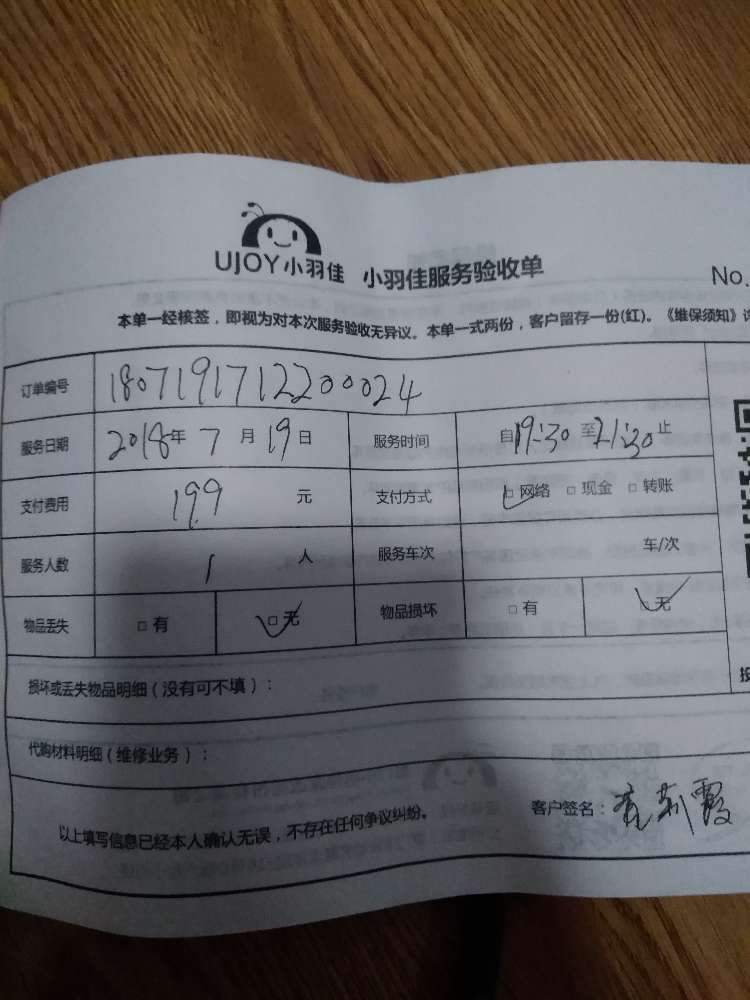 UJOY小羽佳 小羽佳服务验收单
No.
本单一经核签，即视为对本次服务验收无异议。本单一式两份，客户留存一份(红)。《维保须知》
订单编号 1807191712200024
服务日期 2018年 7 月 19 日 服务时间 自19:30 至21:30止
支付费用 19.9 元 支付方式 □ 网络 □ 现金 □ 转账
服务人数 1 人 服务车次 车/次
物品丢失 □ 有 □ 无 物品损坏 □ 有 □ 无
损坏或丢失物品明细（没有可不填）：
代购材料明细（维修业务）：
以上填写信息已经本人确认无误，不存在任何争议纠纷。 客户签名：